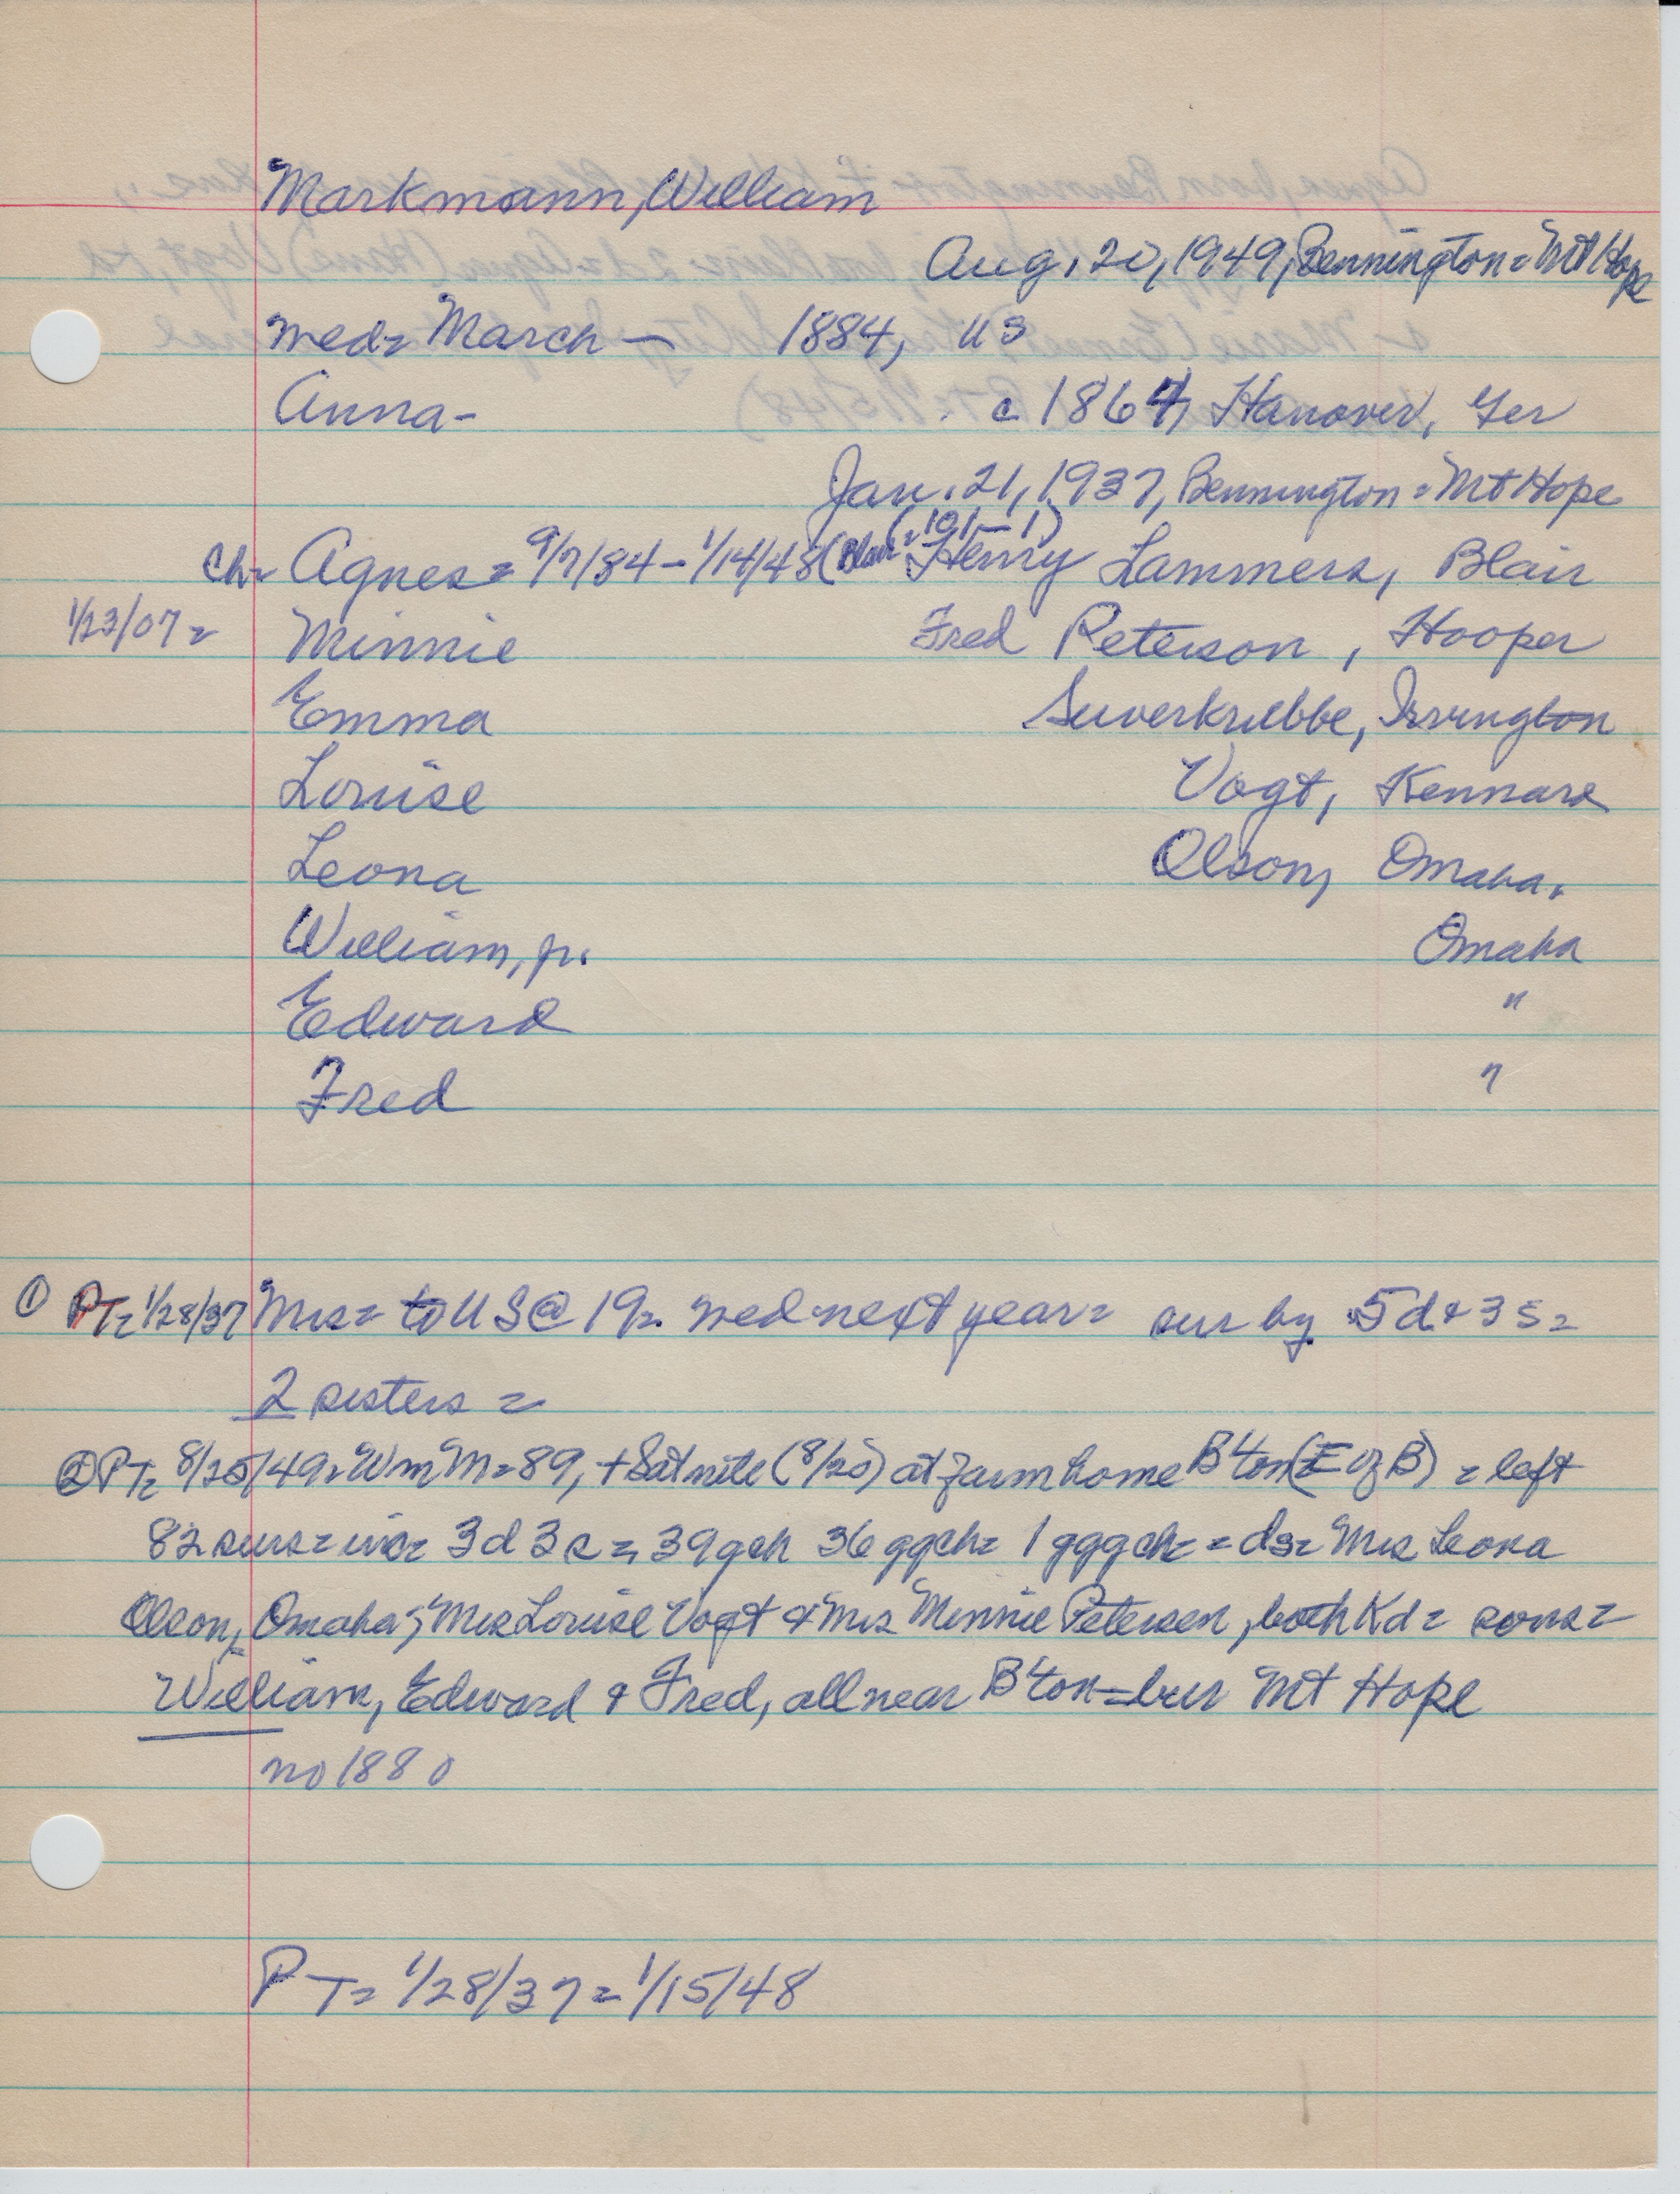 Markmann, William
Aug. 20, 1949, Bennington = Mt Hope
wed= March — 1884, US
Anna- c 1864, Hanover, Ger
Jan. 21, 1937, Bennington = Mt Hope
ch= Agnes = 9/7/84 - 1/14/48 (Blair (=101-1) Henry Lammers, Blair
1/23/07 = Minnie Fred Peterson, Hooper
Emma Suverkrubbe, Irvington
Louise Vogt, Kennard
Leona Olson, Omaha.
William, jr. Omaha
Edward "
Fred "
① PT= 1/28/37 Mrs= to US @ 19= wed next year= sur by 5 d & 3 s=
2 sisters =
② PT= 8/25/49= Wm M=89, + Sat nite (8/20) at farm home B'ton (E of B) = left
82 surs= inc= 3 d 3 s = 39 gch 36 ggch= 1 gggch= = ds= Mrs Leona
Olson, Omaha; Mrs Louise Vogt & Mrs Minnie Petersen, both Kd= sons=
William, Edward & Fred, all near B'ton = bur Mt Hope
no 1880
PT= 1/28/37 = 1/15/48